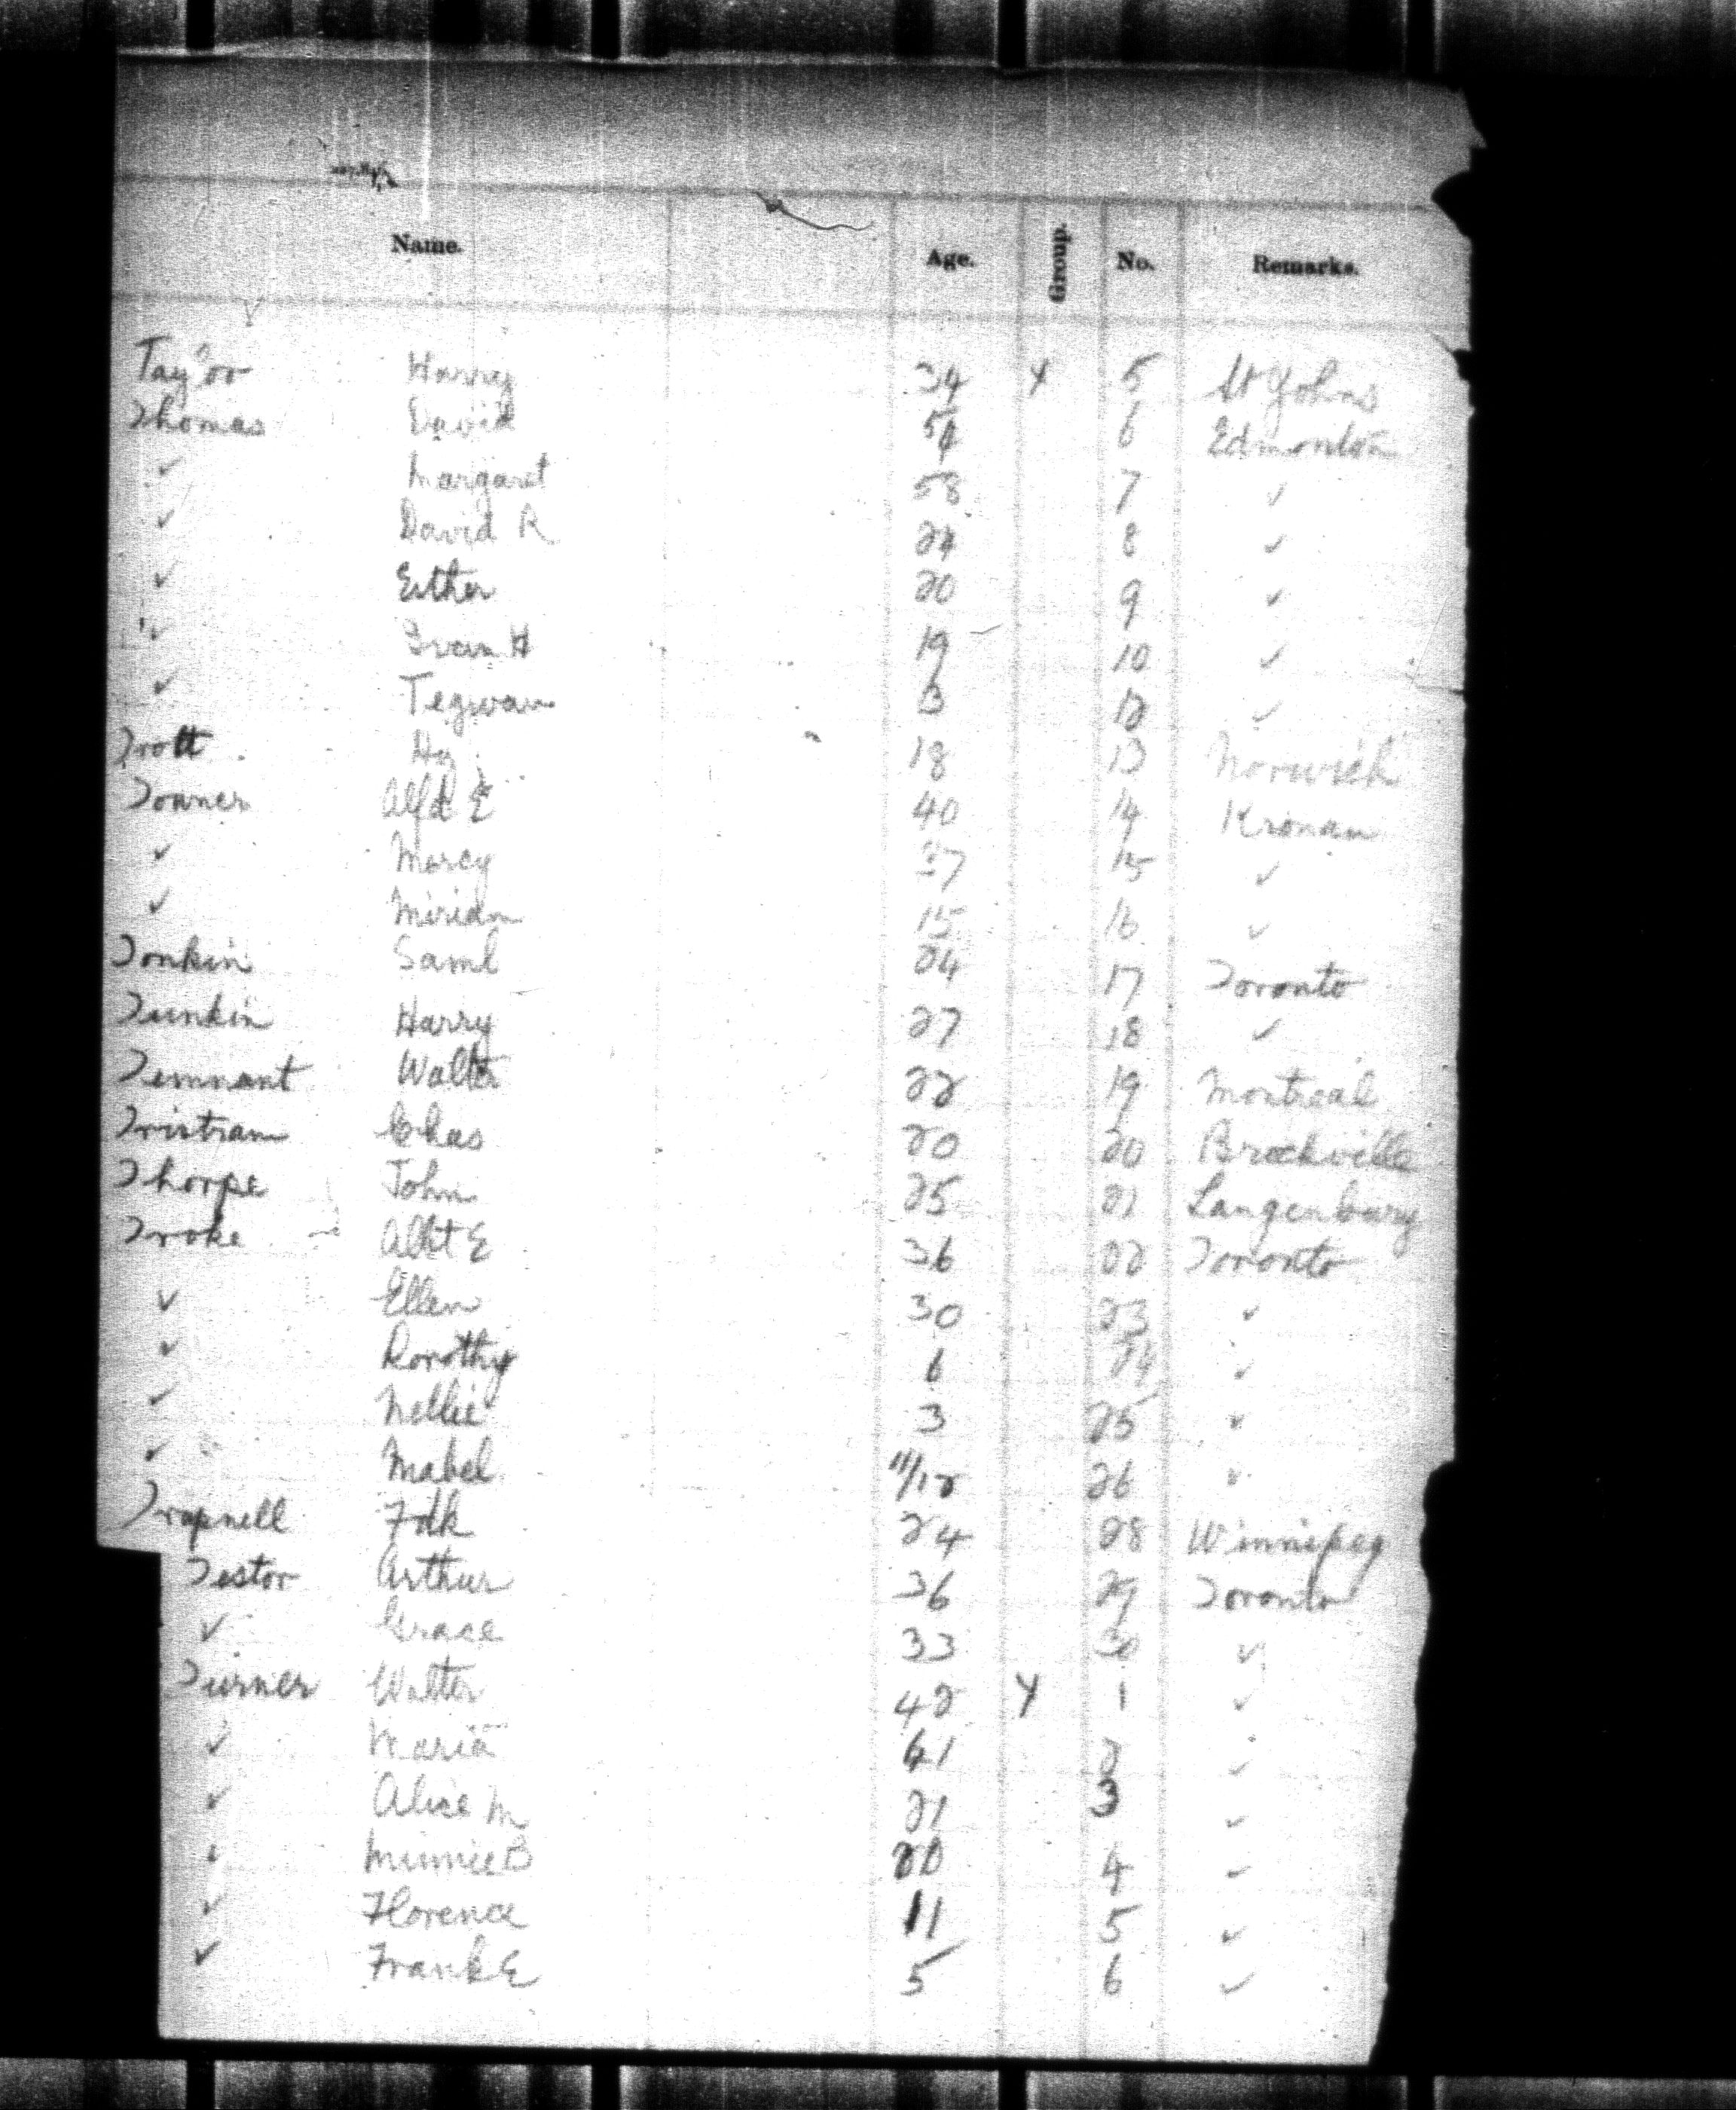 Name. Age. Group. No. Remarks.
Taylor Harry 34 Y 5 St Johns
Thomas David 54 6 Edmonton
✓ Margaret 58 7 ✓
✓ David R 24 8 ✓
✓ Esther 20 9 ✓
✓ Evan H 19 10 ✓
✓ Tegwan 3 12 ✓
Trott Hy 18 13 Norwich
Towner Alfd E 40 14 Kronau
✓ Mercy 37 15 ✓
✓ Miriam 15 16 ✓
Tonkin Saml 24 17 Toronto
Tunkin Harry 27 18 ✓
Temnant Walter 22 19 Montreal
Tristram Chas 20 20 Brockville
Thorpe John 25 21 Langenburg
Troke Albt E 36 22 Toronto
✓ Ellen 30 23 ✓
✓ Dorothy 6 24 ✓
✓ Nellie 3 25 ✓
✓ Mabel 11/12 26 ✓
Trapnell Fdk 24 28 Winnipeg
Testor Arthur 36 29 Toronto
✓ Grace 33 30 ✓
Turner Walter 42 Y 1 ✓
✓ Maria 41 2 ✓
✓ Alice M 21 3 ✓
✓ Minnie B 20 4 ✓
✓ Florence 11 5 ✓
✓ Frank E 5 6 ✓